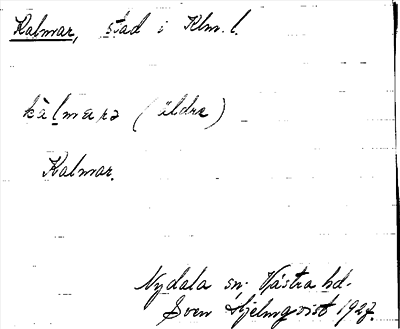 Kalmar, stad i Klm. l.
kàlmarə (äldre)
Kalmar.
Nydala sn. Västra hd.
Sven Hjelmqvist 1927.